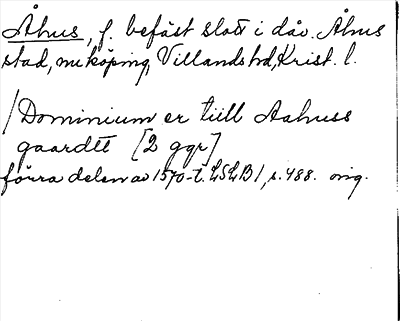 Åhus, f. befäst slott i dåv. Åhus
stad, nu köping, Villands hd, Krist. l.
/Dominium er tiill Aahuss
gaardtt [2 ggr]
förra delen av 1570-t. LSLB1, s. 488. orig.